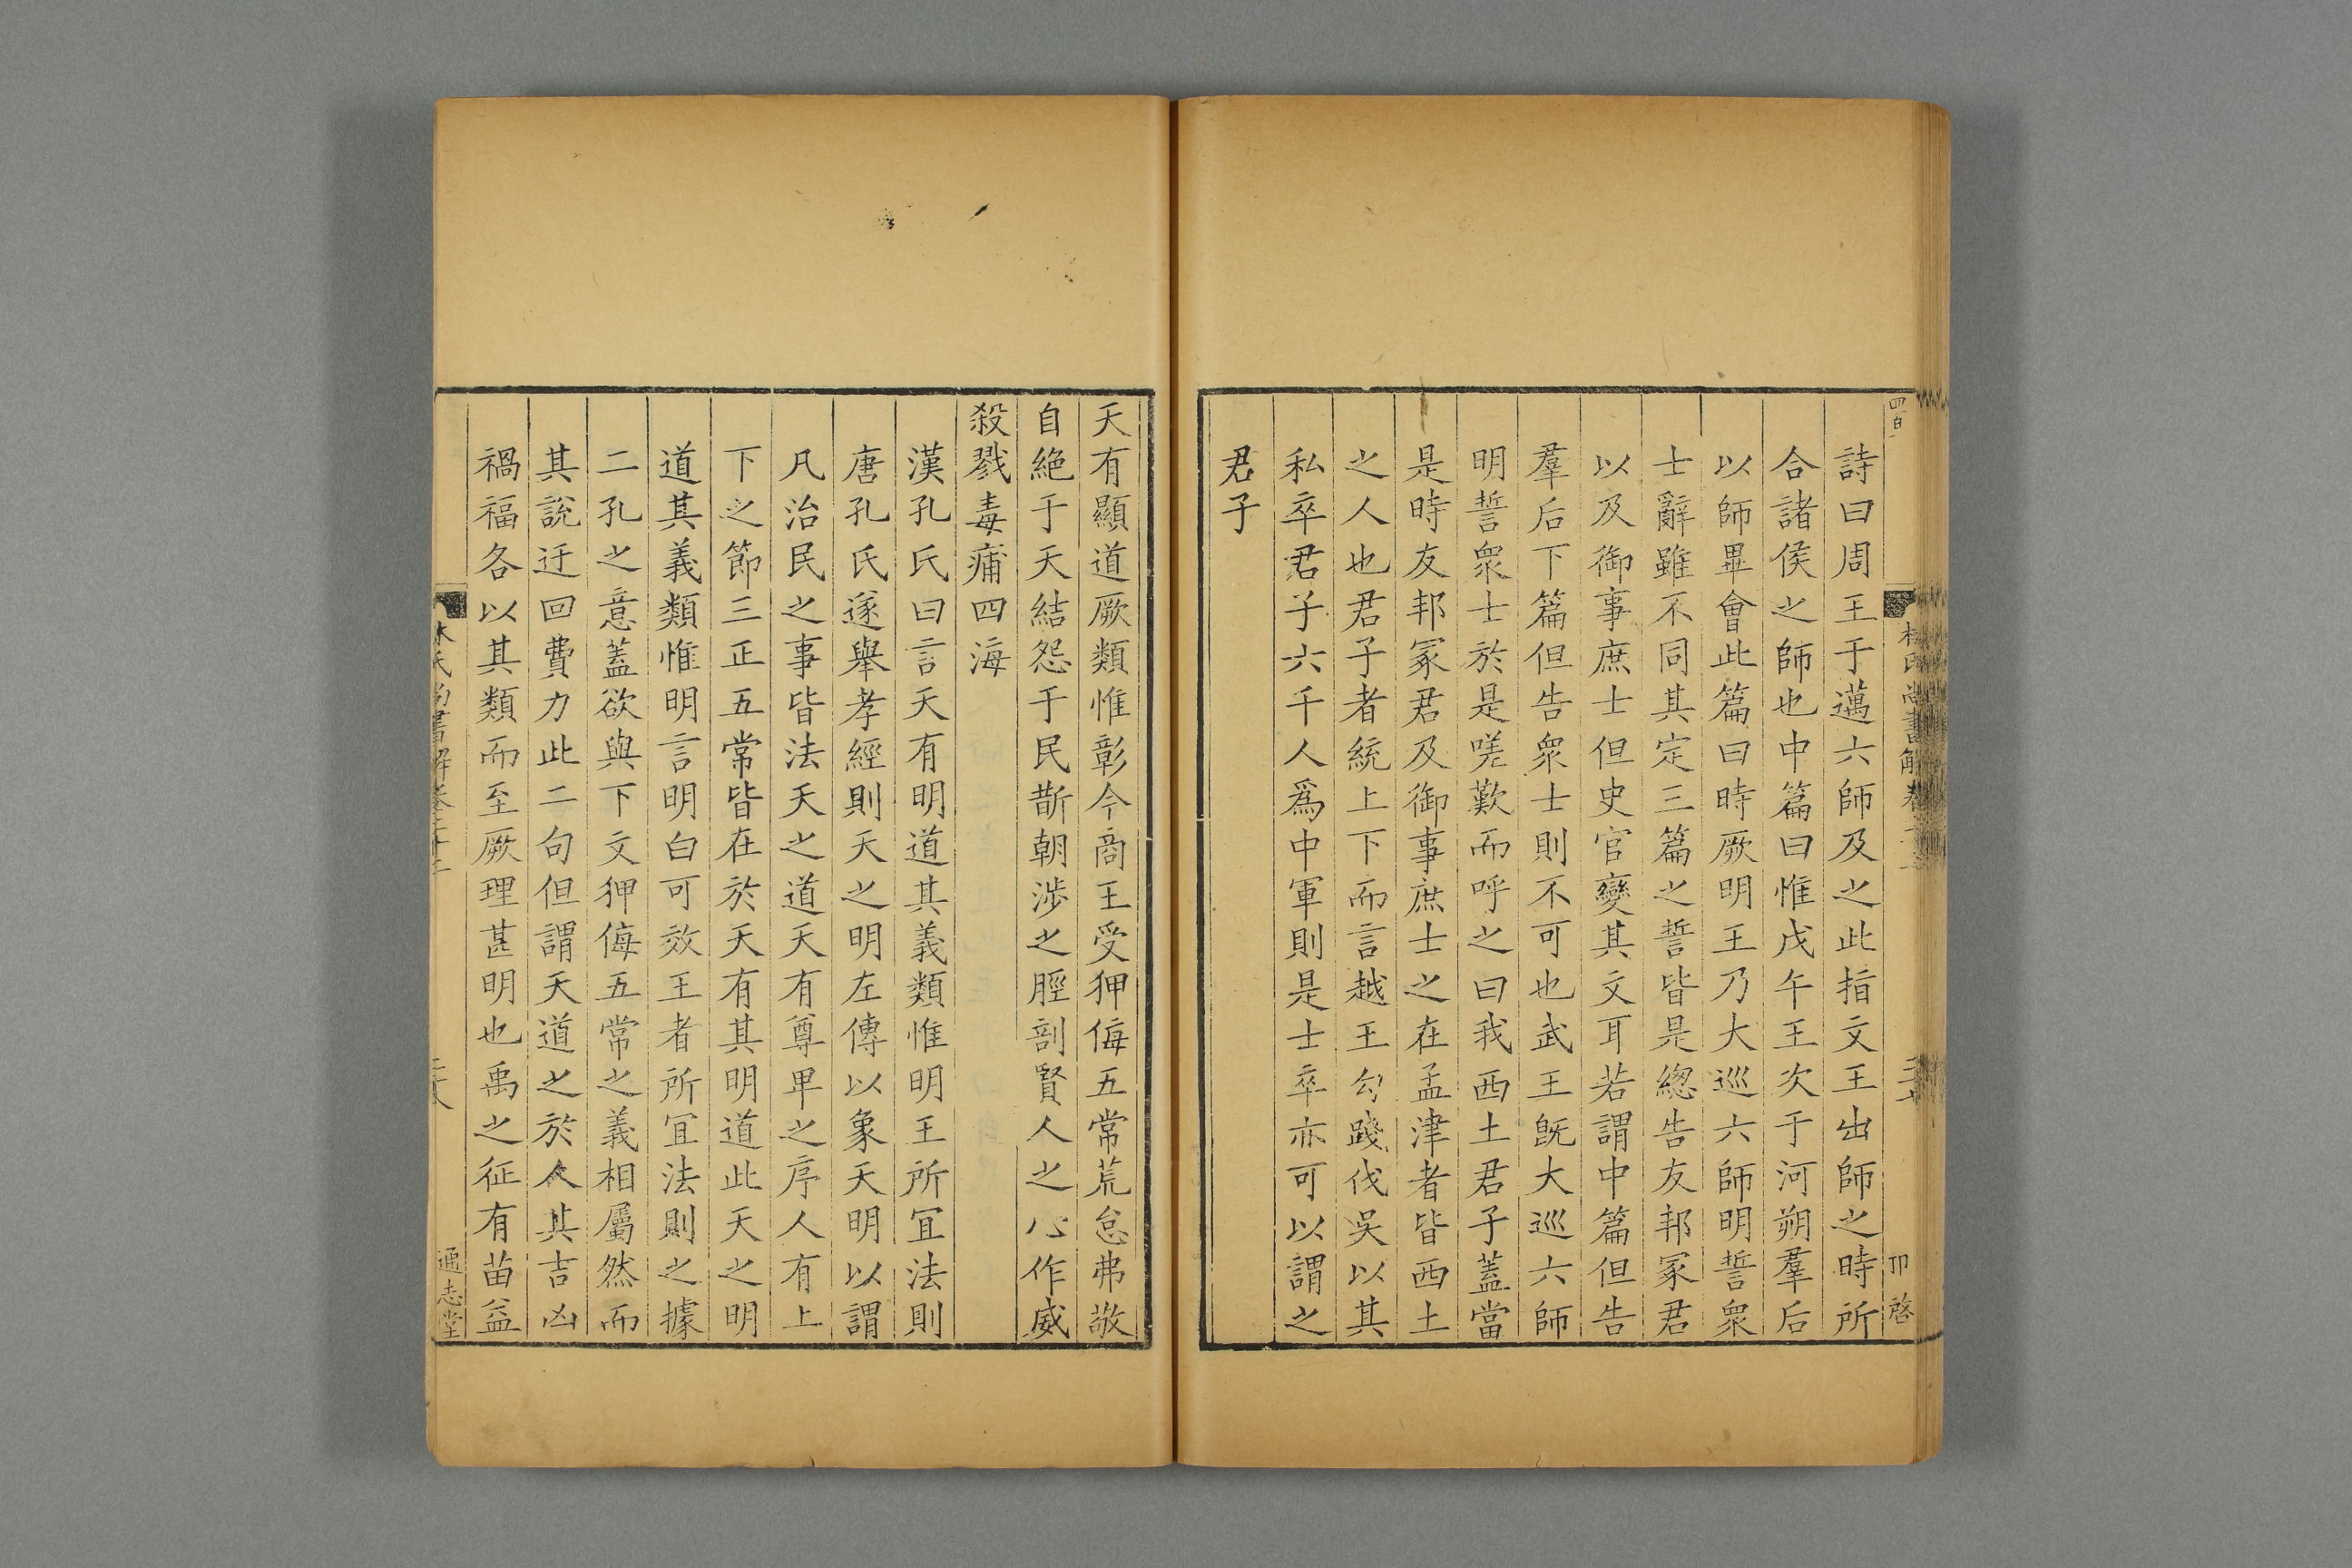 詩曰周王于邁六師及之此指文王出師之時所
合諸侯之師也中篇曰惟戊午王次于河朔羣后
以師畢會此篇曰時厥明王乃大巡六師明誓衆
士辭雖不同其定三篇之誓皆是總告友邦冢君
以及御事庶士但史官變其文耳若謂中篇但告
羣后下篇但告衆士則不可也武王旣大巡六師
明誓衆士於是嗟歎而呼之曰我西土君子蓋當
是時友邦冢君及御事庶士之在孟津者皆西土
之人也君子者統上下而言越王勾踐伐吳以其
私卒君子六千人爲中軍則是士卒亦可以謂之
君子
天有顯道厥類惟彰今商王受狎侮五常荒怠弗敬
自絶于天結怨于民斮朝涉之脛剖賢人之心作威
殺戮毒痡四海
漢孔氏曰言天有明道其義類惟明王所宜法則
唐孔氏遂舉孝經則天之明左傳以象天明以謂
凡治民之事皆法天之道天有尊卑之序人有上
下之節三正五常皆在於天有其明道此天之明
道其義類惟明言明白可效王者所宜法則之據
二孔之意蓋欲與下文狎侮五常之義相屬然而
其說迂回費力此二句但謂天道之於人其吉凶
禍福各以其類而至厥理甚明也禹之征有苗益
通志堂